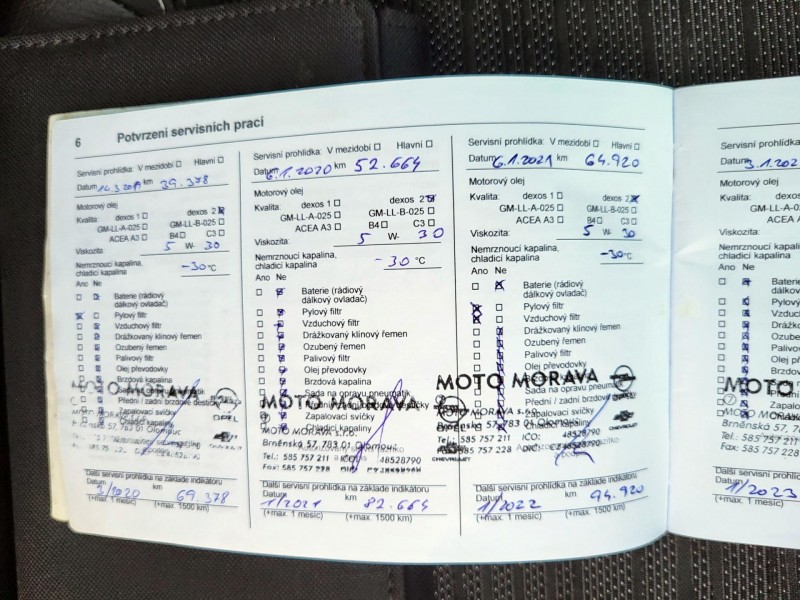 6 Potvrzení servisních prací
Servisní prohlídka: V mezidobí Hlavní
Datum 14.3.2019 km 39.378
Motorový olej
Kvalita: dexos 1 dexos 2
GM-LL-A-025 GM-LL-B-025
ACEA A3 B4 C3
Viskozita: 5 W- 30
Nemrznoucí kapalina,
chladicí kapalina -30 °C
Ano Ne
Baterie (rádiový
dálkový ovladač)
Pylový filtr
Vzduchový filtr
Drážkovaný klínový řemen
Ozubený řemen
Palivový filtr
Olej převodovky
Brzdová kapalina
MOTO MORAVA
Přední / zadní brzdové destičky
Zapalovací svíčky
Chladicí kapalina
OPEL
Další servisní prohlídka na základě indikátoru
Datum km
3/2020 69.378
(+max. 1 měsíc) (+max. 1500 km)
Servisní prohlídka: V mezidobí Hlavní
Datum 6.1.2020 km 52.664
Motorový olej
Kvalita: dexos 1 dexos 2
GM-LL-A-025 GM-LL-B-025
ACEA A3 B4 C3
Viskozita: 5 W- 30
Nemrznoucí kapalina,
chladicí kapalina -30 °C
Ano Ne
Baterie (rádiový
dálkový ovladač)
Pylový filtr
Vzduchový filtr
Drážkovaný klínový řemen
Ozubený řemen
Palivový filtr
Olej převodovky
Brzdová kapalina
Sada na opravu pneumatik
MOTO MORAVA
Zapalovací svíčky
MOTO MORAVA s.r.o.
Brněnská 57, 783 01 Olomouc
Tel.: 585 757 211 IČO: 48528790
Fax: 585 757 228 DIČ: CZ48528790
CHEVROLET
Další servisní prohlídka na základě indikátoru
Datum km
1/2021 82.664
(+max. 1 měsíc) (+max. 1500 km)
Servisní prohlídka: V mezidobí Hlavní
Datum 6.1.2021 km 64.920
Motorový olej
Kvalita: dexos 1 dexos 2
GM-LL-A-025 GM-LL-B-025
ACEA A3 B4 C3
Viskozita: 5 W- 30
Nemrznoucí kapalina,
chladicí kapalina -30 °C
Ano Ne
Baterie (rádiový
dálkový ovladač)
Pylový filtr
Vzduchový filtr
Drážkovaný klínový řemen
Ozubený řemen
Palivový filtr
Olej převodovky
Brzdová kapalina
MOTO MORAVA
Sada na opravu pneumatik
Přední / zadní brzdové
MOTO MORAVA s.r.o.
Zapalovací svíčky
Brněnská 57, 783 01 Olomouc
Tel.: 585 757 211 IČO: 48528790
Fax: 585 757 228 DIČ: CZ48528790
CHEVROLET
Další servisní prohlídka na základě indikátoru
Datum km
1/2022 94.920
(+max. 1 měsíc) (+max. 1500 km)
Servisní prohlídka:
Datum 3.1.202
Motorový olej
Kvalita:
Viskozita:
Nemrznoucí kapalina,
chladicí kapalina
Ano Ne
MOTO
MOTO MORAVA
Brněnská 57, 78
Tel.: 585 757 21
Fax: 585 757 22
Další servisní
Datum
1/2023
(+max. 1 měs